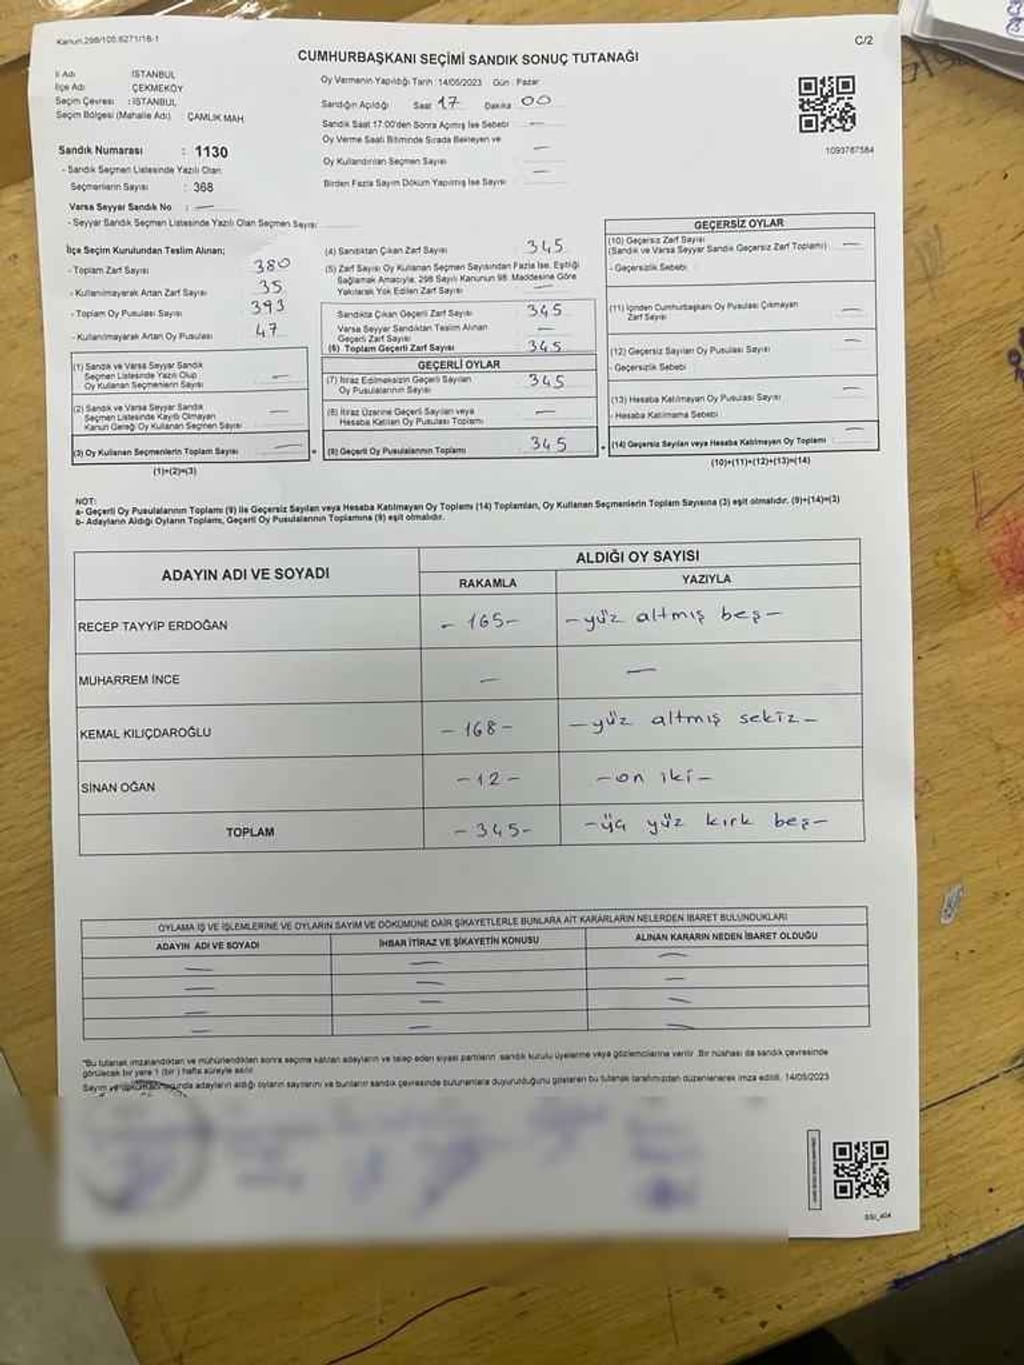 Kanun.298/105.6271/1B-1
C/2
CUMHURBAŞKANI SEÇİMİ SANDIK SONUÇ TUTANAĞI
İl Adı İSTANBUL
İlçe Adı ÇEKMEKÖY
Seçim Çevresi : İSTANBUL
Seçim Bölgesi (Mahalle Adı) : ÇAMLIK MAH.
Sandık Numarası : 1130
- Sandık Seçmen Listesinde Yazılı Olan
Seçmenlerin Sayısı : 368
Varsa Seyyar Sandık No : —
- Seyyar Sandık Seçmen Listesinde Yazılı Olan Seçmen Sayısı:
Oy Vermenin Yapıldığı Tarih : 14/05/2023 Gün : Pazar
Sandığın Açıldığı Saat 17 Dakika 00
Sandık Saat 17:00'den Sonra Açılmış İse Sebebi —
Oy Verme Saati Bitiminde Sırada Bekleyen ve —
Oy Kullandırılan Seçmen Sayısı
Birden Fazla Sayım Döküm Yapılmış İse Sayısı —
1093787584
İlçe Seçim Kurulundan Teslim Alınan;
- Toplam Zarf Sayısı 380
- Kullanılmayarak Artan Zarf Sayısı 35
- Toplam Oy Pusulası Sayısı 393
- Kullanılmayarak Artan Oy Pusulası 47
(1) Sandık ve Varsa Seyyar Sandık
Seçmen Listesinde Yazılı Olup
Oy Kullanan Seçmenlerin Sayısı —
(2) Sandık ve Varsa Seyyar Sandık
Seçmen Listesinde Kayıtlı Olmayan
Kanun Gereği Oy Kullanan Seçmen Sayısı —
(3) Oy Kullanan Seçmenlerin Toplam Sayısı —
(1)+(2)=(3)
(4) Sandıktan Çıkan Zarf Sayısı 345
(5) Zarf Sayısı Oy Kullanan Seçmen Sayısından Fazla İse, Eşitliği
Sağlamak Amacıyla; 298 Sayılı Kanunun 98. Maddesine Göre
Yakılarak Yok Edilen Zarf Sayısı —
Sandıkta Çıkan Geçerli Zarf Sayısı 345
Varsa Seyyar Sandıktan Teslim Alınan
Geçerli Zarf Sayısı —
(6) Toplam Geçerli Zarf Sayısı 345
GEÇERLİ OYLAR
(7) İtiraz Edilmeksizin Geçerli Sayılan
Oy Pusulalarının Sayısı 345
(8) İtiraz Üzerine Geçerli Sayılan veya
Hesaba Katılan Oy Pusulası Toplamı —
(9) Geçerli Oy Pusulalarının Toplamı 345
GEÇERSİZ OYLAR
(10) Geçersiz Zarf Sayısı
(Sandık ve Varsa Seyyar Sandık Geçersiz Zarf Toplamı) —
- Geçersizlik Sebebi
(11) İçinden Cumhurbaşkanı Oy Pusulası Çıkmayan
Zarf Sayısı —
(12) Geçersiz Sayılan Oy Pusulası Sayısı —
- Geçersizlik Sebebi
(13) Hesaba Katılmayan Oy Pusulası Sayısı —
- Hesaba Katılmama Sebebi
(14) Geçersiz Sayılan veya Hesaba Katılmayan Oy Toplamı —
(10)+(11)+(12)+(13)=(14)
NOT:
a- Geçerli Oy Pusulalarının Toplamı (9) ile Geçersiz Sayılan veya Hesaba Katılmayan Oy Toplamı (14) Toplamları, Oy Kullanan Seçmenlerin Toplam Sayısına (3) eşit olmalıdır. (9)+(14)=(3)
b- Adayların Aldığı Oyların Toplamı, Geçerli Oy Pusulalarının Toplamına (9) eşit olmalıdır.
ADAYIN ADI VE SOYADI
ALDIĞI OY SAYISI
RAKAMLA YAZIYLA
RECEP TAYYİP ERDOĞAN - 165 - - yüz altmış beş -
MUHARREM İNCE — —
KEMAL KILIÇDAROĞLU - 168 - - yüz altmış sekiz -
SİNAN OĞAN - 12 - - on iki -
TOPLAM - 345 - - üç yüz kırk beş -
OYLAMA İŞ VE İŞLEMLERİNE VE OYLARIN SAYIM VE DÖKÜMÜNE DAİR ŞİKAYETLERLE BUNLARA AİT KARARLARIN NELERDEN İBARET BULUNDUKLARI
ADAYIN ADI VE SOYADI İHBAR İTİRAZ VE ŞİKAYETİN KONUSU ALINAN KARARIN NEDEN İBARET OLDUĞU
— — —
— — —
— — —
— — —
"Bu tutanak imzalandıktan ve mühürlendikten sonra seçime katılan adayların ve talep eden siyasi partilerin sandık kurulu üyelerine veya gözlemcilerine verilir. Bir nüshası da sandık çevresinde
görülecek bir yere 1 (bir) hafta süreyle asılır.
Sayım ve adayların aldığı oyların sayılarını ve bunların sandık çevresinde bulunanlara duyurulduğunu gösteren bu tutanak tarafımızdan düzenlenerek imza edildi. 14/05/2023